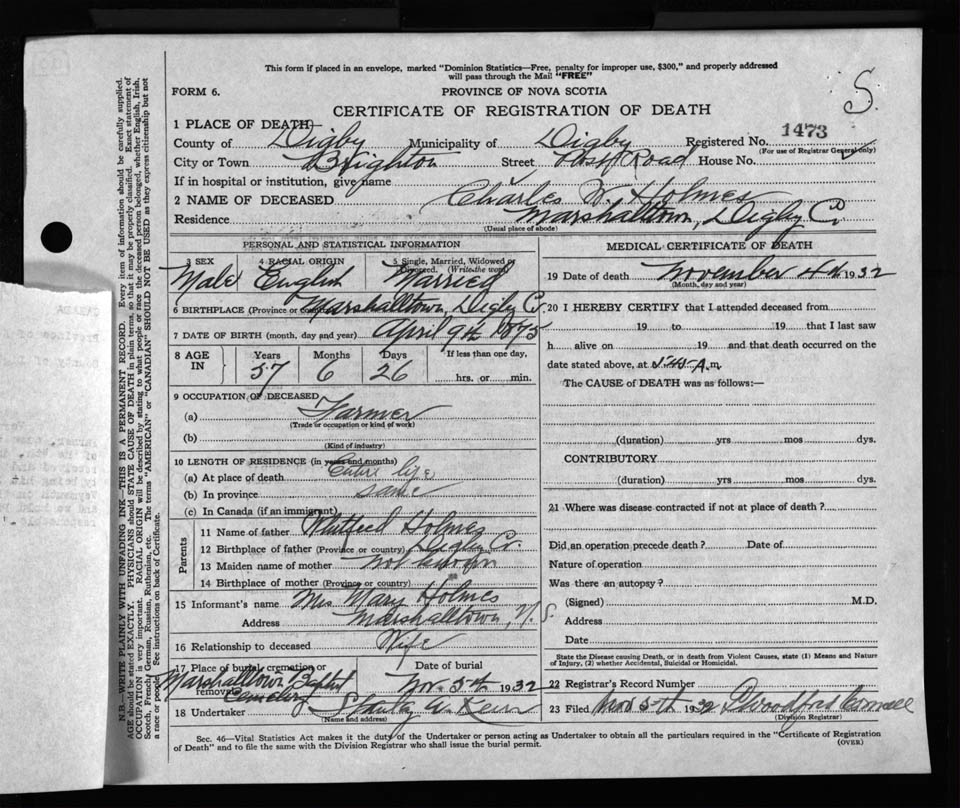 This form if placed in an envelope, marked "Dominion Statistics—Free, penalty for improper use, $300," and properly addressed
will pass through the Mail "FREE"
FORM 6.
PROVINCE OF NOVA SCOTIA
S.
CERTIFICATE OF REGISTRATION OF DEATH
1 PLACE OF DEATH—
1473
County of Digby Municipality of Digby Registered No.
(For use of Registrar General only)
City or Town Brighton Street Post Road House No.
If in hospital or institution, give name
2 NAME OF DECEASED Charles W. Holmes
Residence Marshalltown, Digby Co.
(Usual place of abode)
PERSONAL AND STATISTICAL INFORMATION
3 SEX 4 RACIAL ORIGIN 5 Single, Married, Widowed or
Divorced. (Write the word)
Male English Married
6 BIRTHPLACE (Province or country) Marshalltown, Digby Co.
7 DATE OF BIRTH (month, day and year) April 9th 1875
8 AGE IN Years Months Days If less than one day,
57 6 26 hrs. or min.
9 OCCUPATION OF DECEASED
(a) Farmer
(Trade or occupation or kind of work)
(b)
(Kind of industry)
10 LENGTH OF RESIDENCE (in years and months)
(a) At place of death Entire life
(b) In province same
(c) In Canada (if an immigrant)
Parents
11 Name of father Holmes
12 Birthplace of father (Province or country) Digby Co.
13 Maiden name of mother not known
14 Birthplace of mother (Province or country)
15 Informant's name Mrs Mary Holmes
Address Marshalltown, N. S.
16 Relationship to deceased Wife
17 Place of burial, cremation or Date of burial
removal Marshalltown Baptist Cemetery Nov. 5th 1932
18 Undertaker Stanley
(Name and address)
MEDICAL CERTIFICATE OF DEATH
19 Date of death November 4th 1932
(Month, day and year)
20 I HEREBY CERTIFY that I attended deceased from
19 to 19 that I last saw
h alive on 19 and that death occurred on the
date stated above, at A.m.
The CAUSE of DEATH was as follows:—
(duration) yrs mos dys.
CONTRIBUTORY
(duration) yrs mos dys.
21 Where was disease contracted if not at place of death?
Did an operation precede death? Date of
Nature of operation
Was there an autopsy?
(Signed) M.D.
Address
Date
State the Disease causing Death, or in death from Violent Causes, state (1) Means and Nature
of Injury, (2) whether Accidental, Suicidal or Homicidal.
22 Registrar's Record Number
23 Filed Nov 5th 1932
(Division Registrar)
Sec. 46—Vital Statistics Act makes it the duty of the Undertaker or person acting as Undertaker to obtain all the particulars required in the "Certificate of Registration
of Death" and to file the same with the Division Registrar who shall issue the burial permit.
(OVER)
N.B.—WRITE PLAINLY WITH UNFADING INK—THIS IS A PERMANENT RECORD. Every item of information should be carefully supplied.
AGE should be stated EXACTLY. PHYSICIANS should STATE CAUSE OF DEATH in plain terms, so that it may be properly classified. Exact statement of
OCCUPATION is very important. RACIAL ORIGIN will be described by stating to what people or race the deceased person belonged, whether English, Irish,
Scotch, French, German, Russian, Ruthenian, etc. The terms "AMERICAN" or "CANADIAN" SHOULD NOT BE USED as they express citizenship but not
a race or people. See instructions on back of Certificate.